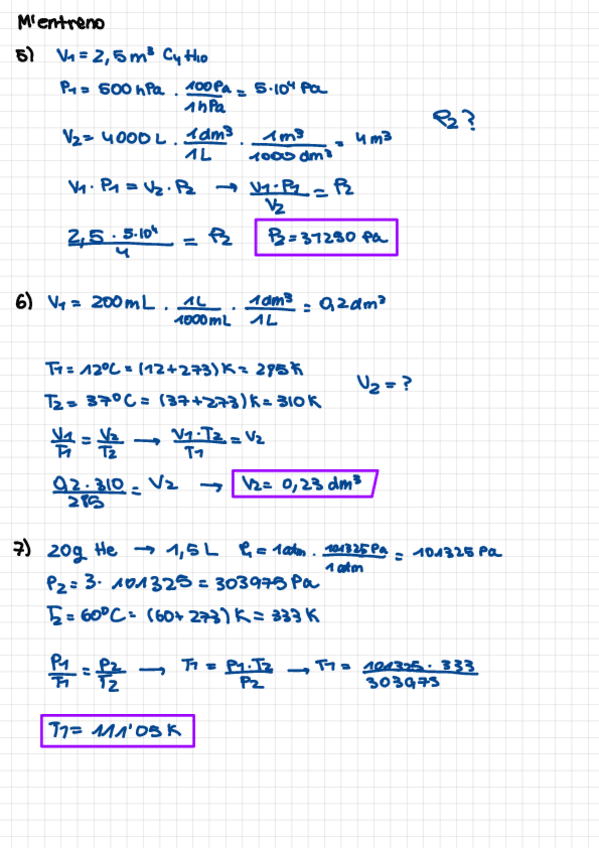 M'entreno
5) V1 = 2,5 m³ C4H10
P1 = 500 hPa · 100Pa/1hPa = 5·10⁴ Pa
P2?
V2 = 4000 L · 1dm³/1L · 1m³/1000dm³ = 4m³
V1·P1 = V2·P2 → V1·P1/V2 = P2
2,5 · 5·10⁴/4 = P2 P2 = 31250 Pa
6) V1 = 200mL · 1L/1000mL · 1dm³/1L = 0,2dm³
T1 = 12ºC = (12+273)K = 285K
V2 = ?
T2 = 37ºC = (37+273)K = 310K
V1/T1 = V2/T2 → V1·T2/T1 = V2
0,2·310/285 = V2 → V2 = 0,23 dm³
7) 20g He → 1,5L P1 = 1atm · 101325Pa/1atm = 101325 Pa
P2 = 3· 101325 = 303975 Pa
T2 = 60ºC = (60+273)K = 333K
P1/T1 = P2/T2 → T1 = P1·T2/P2 → T1 = 101325·333/303975
T1 = 111'05 K